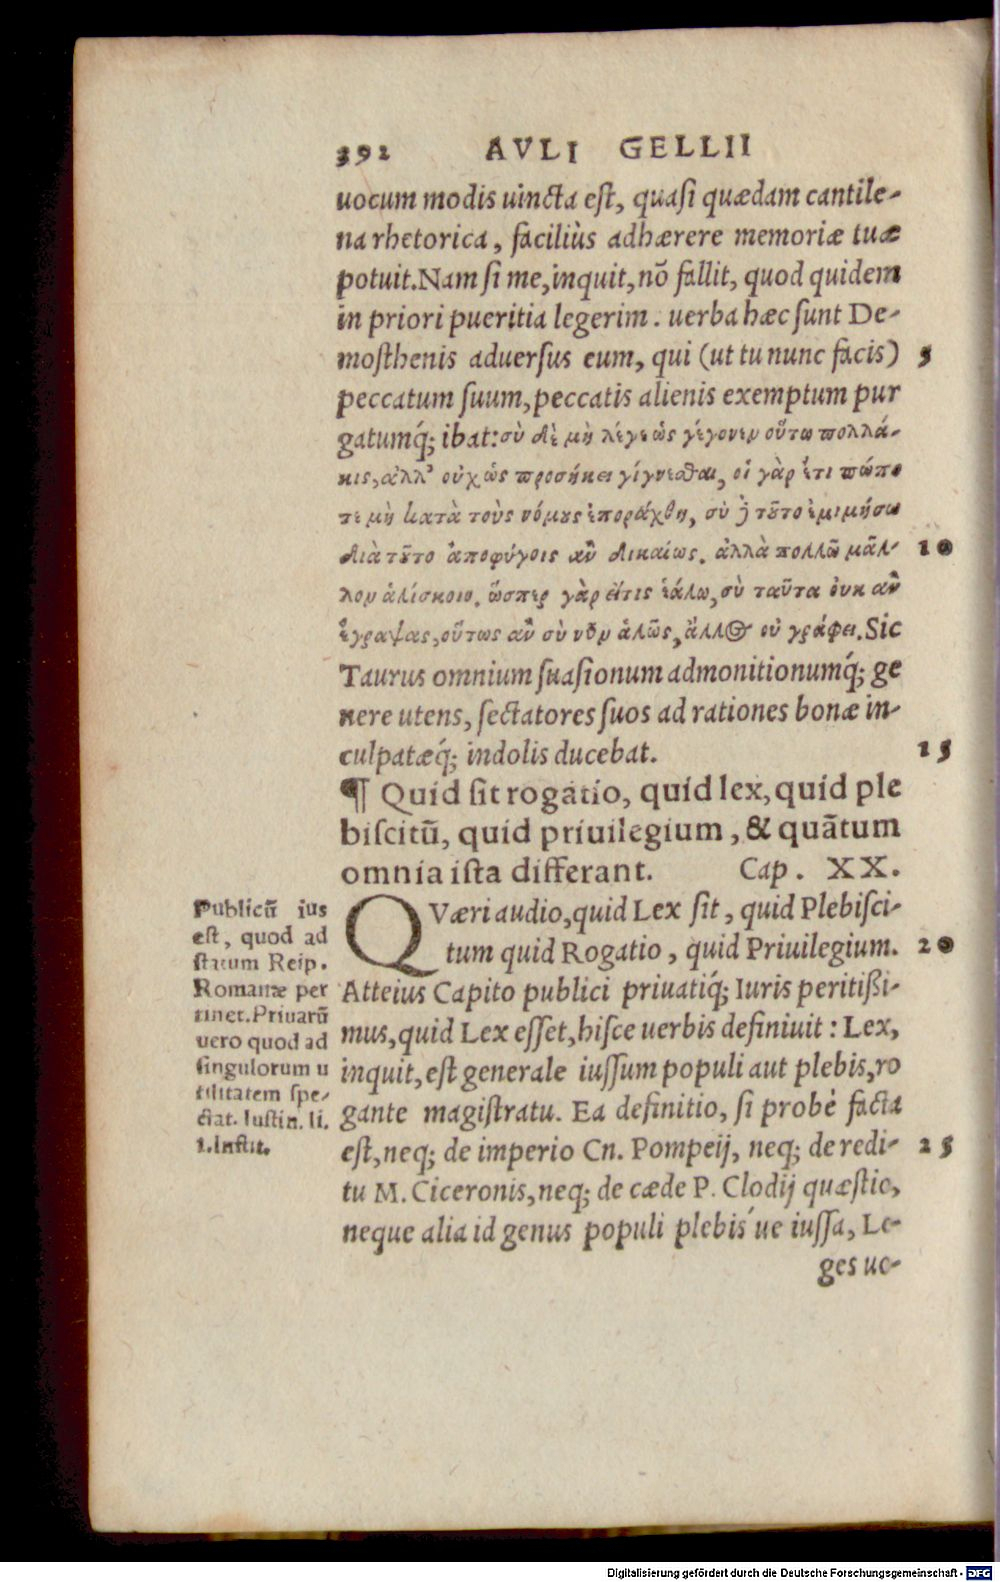 392 AVLI GELLII
uocum modis uincta est, quasi quædam cantile-
na rhetorica, faciliùs adhærere memoriæ tuæ
potuit. Nam si me, inquit, nõ fallit, quod quidem
in priori pueritia legerim. uerba hæc sunt De-
mosthenis aduersus eum, qui (ut tu nunc facis) 5
peccatum suum, peccatis alienis exemptum pur
gatumq́; ibat: σὺ δὲ μὴ λέγε ὡς γέγονεν οὕτω πολλά-
κις, ἀλλ' οὐχ ὡς προσήκει γίγνεσθαι, οἱ γὰρ ἔτι πώπο
τε μὴ κατὰ τοὺς νόμους ἐπράχθη, σὺ ἢ τοῦτο ἐμιμήσω
διὰ τοῦτο ἀποφύγοις ἂν δικαίως. ἀλλὰ πολλῶ μᾶλ- 10
λον ἁλίσκοιο. ὥσπερ γὰρ εἴτις ἑάλω, σὺ ταῦτα ὀυκ ἂν
ἔγραψας, οὕτως ἂν σὺ νῦν ἁλῶς, ἄλλος οὐ γράφει. Sic
Taurus omnium suasionum admonitionumq́; ge
nere utens, sectatores suos ad rationes bonæ in-
culpatæq́; indolis ducebat. 15
¶ Quid sit rogatio, quid lex, quid ple
biscitũ, quid priuilegium, & quãtum
omnia ista differant. Cap. XX.
QVæri audio, quid Lex sit, quid Plebisci-
tum quid Rogatio, quid Priuilegium. 20
Atteius Capito publici priuatiq́; Iuris peritißi-
mus, quid Lex esset, hisce uerbis definiuit: Lex,
inquit, est generale iussum populi aut plebis, ro
gante magistratu. Ea definitio, si probè facta
est, neq; de imperio Cn. Pompeij, neq; de redi- 25
tu M. Ciceronis, neq; de cæde P. Clodij quæstio,
neque alia id genus populi plebis´ue iussa, Le-
ges uo-
Publicũ ius
est, quod ad
statum Reip.
Romanæ per
tinet. Priuarũ
uero quod ad
singulorum u
tilitatem spe-
ctat. Iustin. li.
1. Instit.
Digitalisierung gefördert durch die Deutsche Forschungsgemeinschaft - DFG